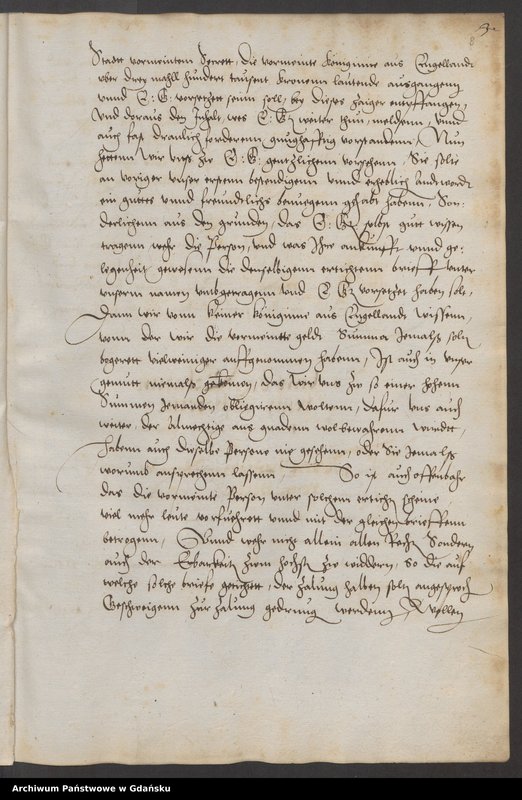 Stadt vormeintem
die vormeinte Königinne aus Engellandt
vber drey mahll hundert tausent kronenn lautende ausgangenn
vnnd E: G: vorsetzett sein soll, bey dieses Zeiger entpffangen,
Vnd daraus den Inhalt, wes E: G: weiter thun, meldenn, vnnd
auch fast draulich forderenn, gnughafftig vorstanden, Nun
hetten wir vns zw E: G: gentzlichenn vorsehenn, Sie solte
an voriger vnser erstenn bestendigenn vnnd erheblich andtwordt
ein guttes vnnd freundtlichs benuegenn gehabt habenn, Son-
derlichenn aus den grunden, das E: G: selbst gutt wissen
tragenn wehr die Person, vnd was Ihre ankunfft vnnd ge-
legenheit gewesenn die denselbigenn ertichtenn brieff vnter
vnserm namen vmbgetragenn vnd E G: vorsetzet haben soll,
Dann wir vonn keiner königinne aus Engellandt wissenn,
vonn der wir die vermeintte geldt Summa jemalss soltn
begerett vielweiniger auffgenommen habenn, Ist auch in vnser
gemutt niemalss gekomen, das wir vns zw so einer hohenn
Summen Jemanden obligirenn woltenn, dafur vns auch
weiter, der Almechtige aus gnadenn wol bewarenn wirdtt,
Habenn auch dieselbe Persone nie gesehenn, oder Sie Jemalss
worumb ansprechenn lassenn, So ist auch offenbahr
das die vormeinte Person, vnter solchem ertichten scheine
viel mehr leute vorfuehrett vnnd mit der gleichen brieffenn
betrogenn, Vnnd wehr nicht allein allen Recht Sondern
auch der Erbarkeit zum höchsten zw widdern, So die auff
welche solche briefe getichtett, der Zalung halben soltn angesproch
Geschweigenn zur Zalung gedrung werdenn
Archiwum Państwowe w Gdańsku